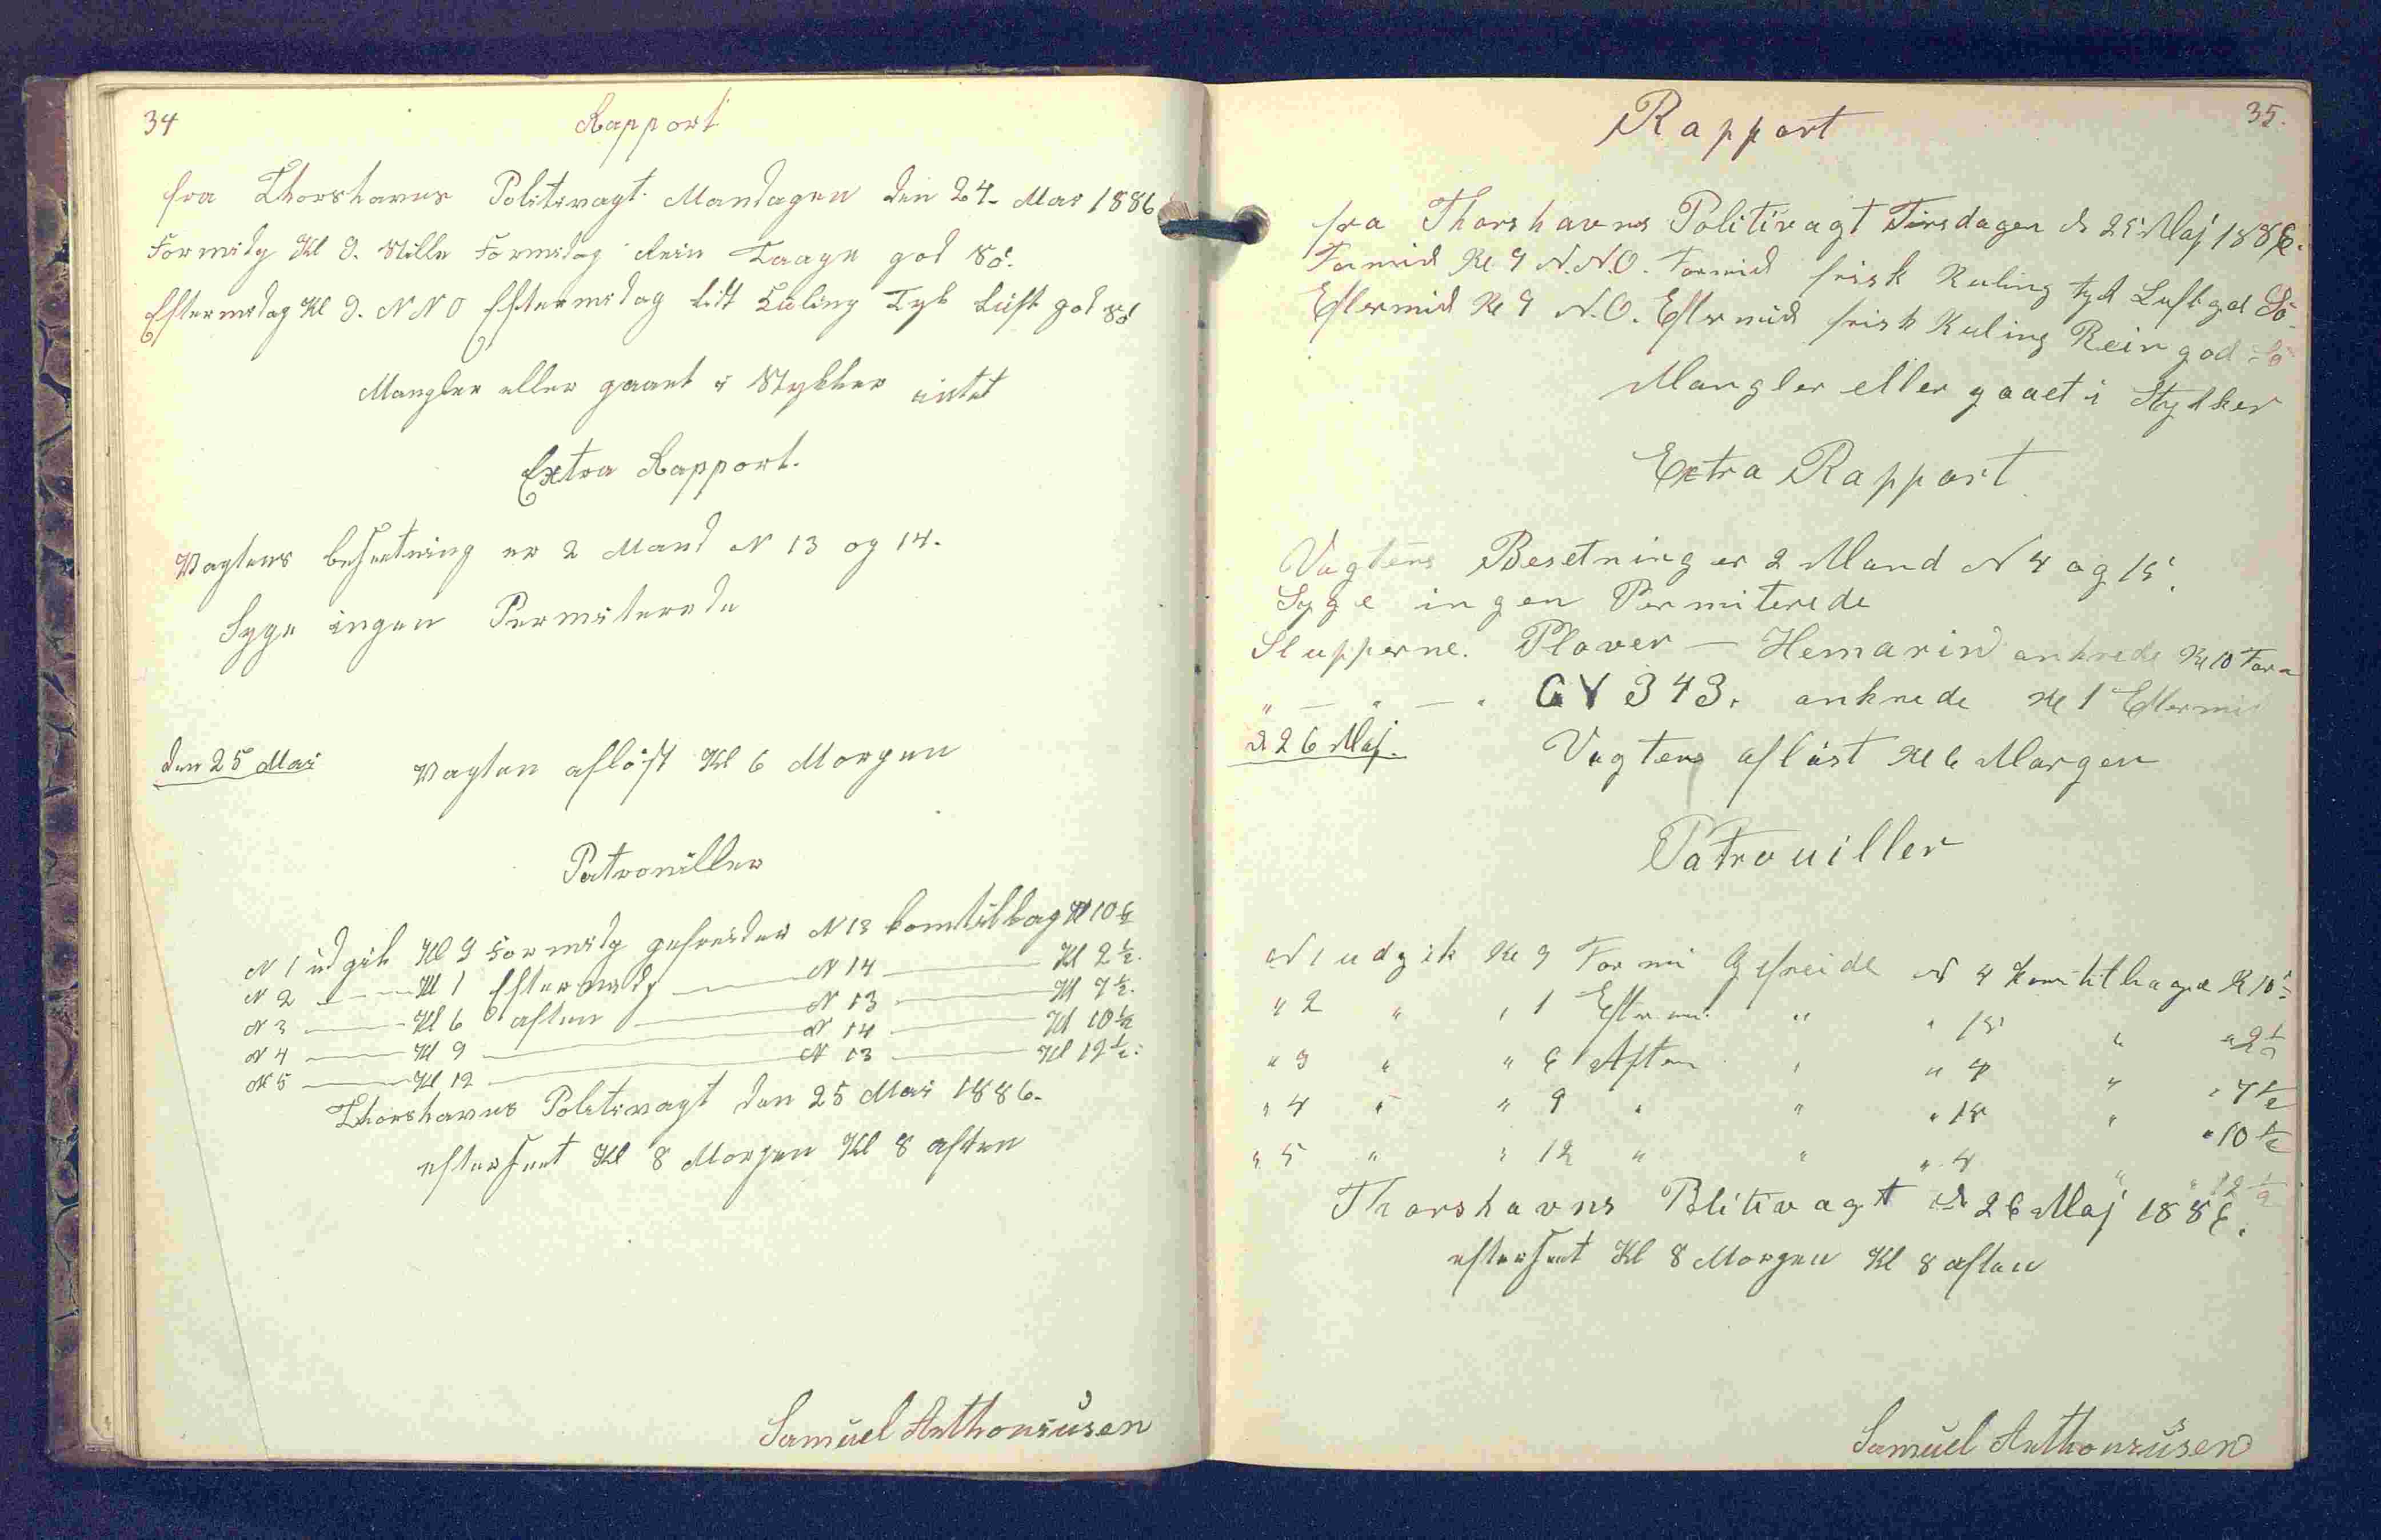 34
Rapport
fra Thorshavns Politivagt Mandagen den 24- Mai 1886
Formidg Kl 9. Stille Formidag Rein Taage god Sö.
Eftermidag Kl 9. NNO Eftermidag lidt Kuling Tyk Luft god Sö
Mangler eller gaaet i Stykker intet
Extra Rapport.
Vagtens besætning er 2 Mand N 13 og 14.
Syge ingen Permiterede
den 25 Mai Vagten aflöst Kl 6 Morgen
Patrouiller
N 1 udgik Kl 9 Formidg gefreider N 13 kom tilbag Kl 10½
N 2 — Kl 1 Eftermidg — N 14 — Kl 2½.
N 3 — Kl 6 aften — N 13 — Kl 7½.
N 4 — Kl 9 — N 14 — Kl 10½
N 5 — Kl 12 — N 13 — Kl 12½.
Thorshavns Politivagt den 25 Mai 1886.
efterseet Kl 8 Morgen Kl 8 aften
Samuel Anthoniusen
35.
Rapport
fra Thorshavns Politivagt Tirsdagen d 25 Maj 1886.
Formid Kl 9 N.N.O. Formid frisk Kuling tyk Luft god Sö.
Eftermid Kl 9 N.O. Eftermid frisk Kuling Rein god Sö
Mangler eller gaaet i Stykker
Extra Rapport
Vagtens Besetning er 2 Mand N 4 og 15.
Syge ingen Permiterede
Slupperne. Plover — Hemarin ankrede Kl 10 Form
" — " — " GY 343. ankrede Kl 1 Eftermi
d 26 Maj. Vagtens aflöst Kl 6 Morgen
Patrouiller
N 1 udgik Kl 9 Formi Gefreide N 4 kom tilbage Kl 10½
" 2 " " 1 Efterm. " " 15 " " 2½
" 3 " " 6 Aften " " 4 " " 7½
" 4 " " 9 " " " 15 " " 10½
" 5 " " 12 " " " 4 " " 12½
Thorshavns Politivagt d 26 Maj 1886.
efterseet Kl 8 Morgen Kl 8 aften
Samuel Anthoniusen